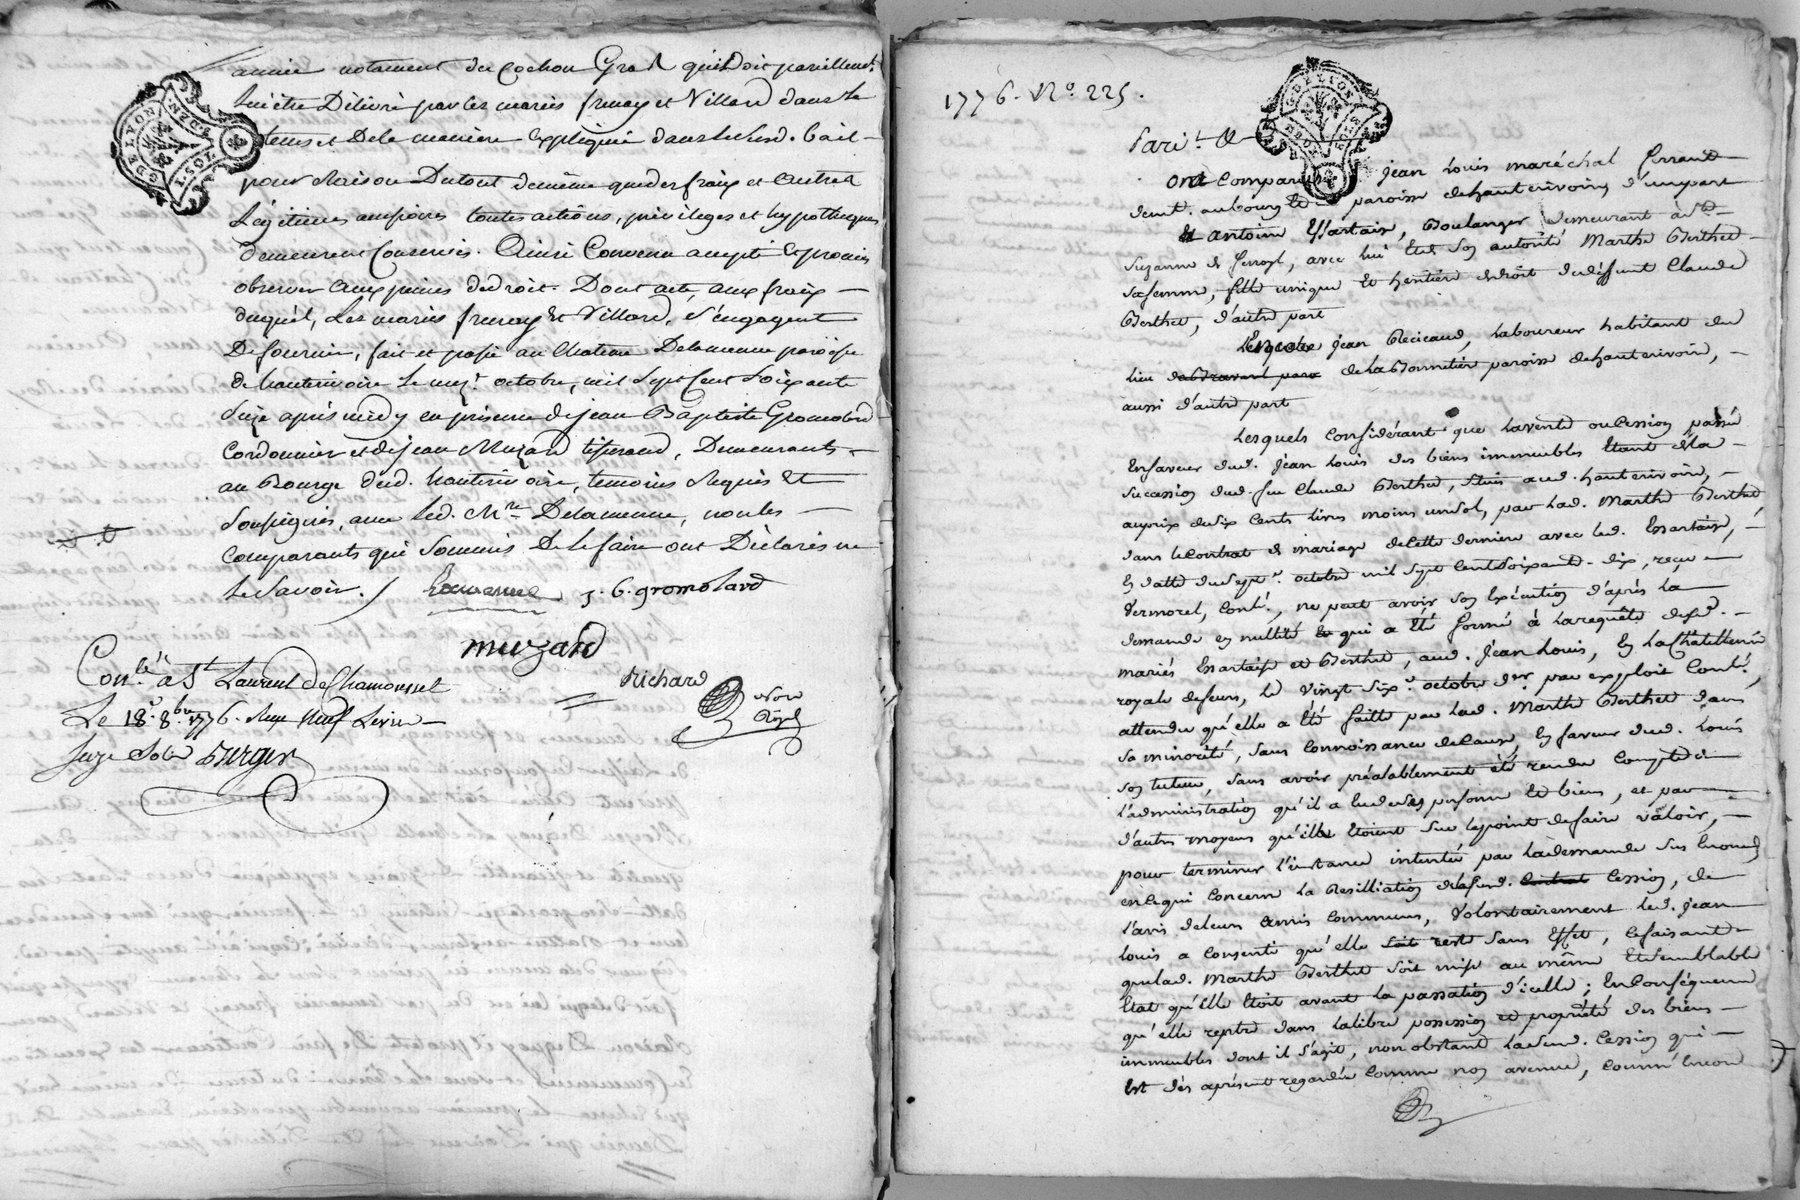 année notament du cochon Gras qui doit pareillemt.
lui être Délivré par les mariés frenay et Villard dans le
tems et De la maniere Expliquée dans le susd. bail
pour Raison Du tout de même que des fraix et autres
Légitimes accessoires toutes actions, privileges et hypotheques
demeurent Conservés. Ainsi Convenu accepté et promis
observer aux peines de droit. Dont acte, aux fraix
duquel, Les mariés frenay et Villard, s'engagent
De fournir, fait et passé au Chateau Delamenue paroisse
de hauterivoire le octobre, mil Sept Cent Soixante
Seize après midy en présence de jean Baptiste Gromolard
Cordonnier et de jean Muzard tisserand, Demeurants
au Bourg dud. hauterivoire, temoins Requis et
Soussignés, avec led. Mre. non les
comparants qui Sommés De le faire ont Déclarés ne
le Savoir. / J. B. gromolard
muzard
Richard
Nore
Royal
Conlé. à St Laurent de Chamousset
Le 18e. 8bre 1776. Reçu Neuf Livres
Seize Sols Burger
1776. No. 225.
Pard. &
ont Comparus Jean Louis maréchal ferrand
demt. au bourg et paroisse de hauterivoire d'une part
Et Antoine Essartaix, Boulanger demeurant à Ste
Suzanne de ferroyl, avec lui Et de Son autorité Marthe Berthet
Sa femme, fille unique Et heritière de droit de deffunt Claude
Berthet, d'autre part
Encore Jean Recicaud, Laboureur habitant du
lieu de la Bonnetière paroisse de hauterivoire,
aussi d'autre part
Lesquels Considérant que la vente ou Cession passée
En faveur dud. Jean Louis des biens immeubles Etant de la
Succession dud. feu Claude Berthet, Situés aud. hauterivoire,
au prix de Six Cents livres moins un Sol, par lad. Marthe Berthet
dans le Contrat de mariage de Cette derniere avec led. Essartaix,
En datte du Sept octobre mil Sept Cent Soixante-dix, reçu
Vermorel, Conlé., ne peut avoir Son Exécution d'après la
demande en nullité qui a Eté formé à la requête desd.
mariés Essartaix et Berthet, aud. Jean Louis, En La Chatellenie
royale de feurs, Le Vingt Six octobre der. par exploit Conlé.,
attendu qu'elle a Eté faitte par lad. Marthe Berthet dans
Sa minorité, Sans Connoissance de Cause, En faveur dud. Louis
Son tuteur, Sans avoir préalablement été rendu Compte de
l'administration qu'il a Eue de Ses personne Et biens, et par
d'autres moyens qu'elle Etoient Sur le point de faire valoir,
pour terminer l'instance intentée par la demande Sus Enoncée
en Ce qui Concerne La Resilliation de la Susd. Cession, de
l'avis de leurs Amis Communs, Volontairement led. Jean
Louis a Consenti qu'elle reste Sans Effet, Ce faisant
que lad. Marthe Berthet Soit mise au même Et Semblable
Etat qu'elle Etoit avant La passation d'icelle; En Conséquence
qu'elle rentre dans la libre possession et propriété des biens
immeubles dont il S'agit, non obstant la Susd. Cession qui
Est dès aprésent regardée Comme non avenue, Comm'Encore